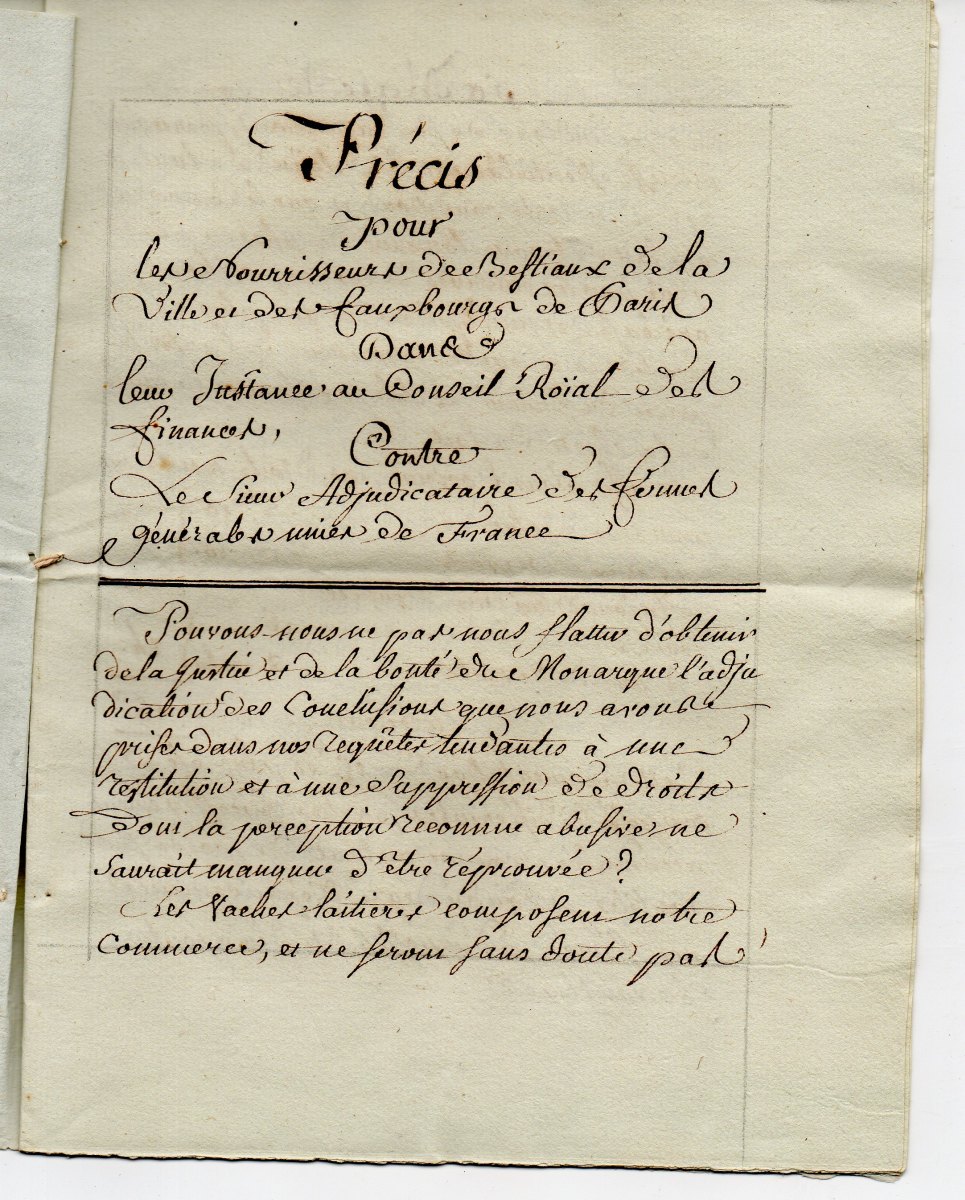 Précis
pour
les Nourrisseurs de Bestiaux de la
Ville et des fauxbourgs de Paris
Dans
leur Instance au Conseil Roïal des
finances,
Contre
Le Sieur Adjudicataire des fermes
générales unies de France
Pouvons-nous ne pas nous flatter d'obtenir
de la Justice et de la bonté du Monarque l'adju
dication des Conclusions que nous avons
prises dans nos requêtes tendantes à une
restitution et à une Suppression de droits
Dont la perception reconnue abusive ne
Saurait manquer d'être réprouvée ?
Les Vaches laitieres composent notre
Commerce, et ne seront sans doute pas